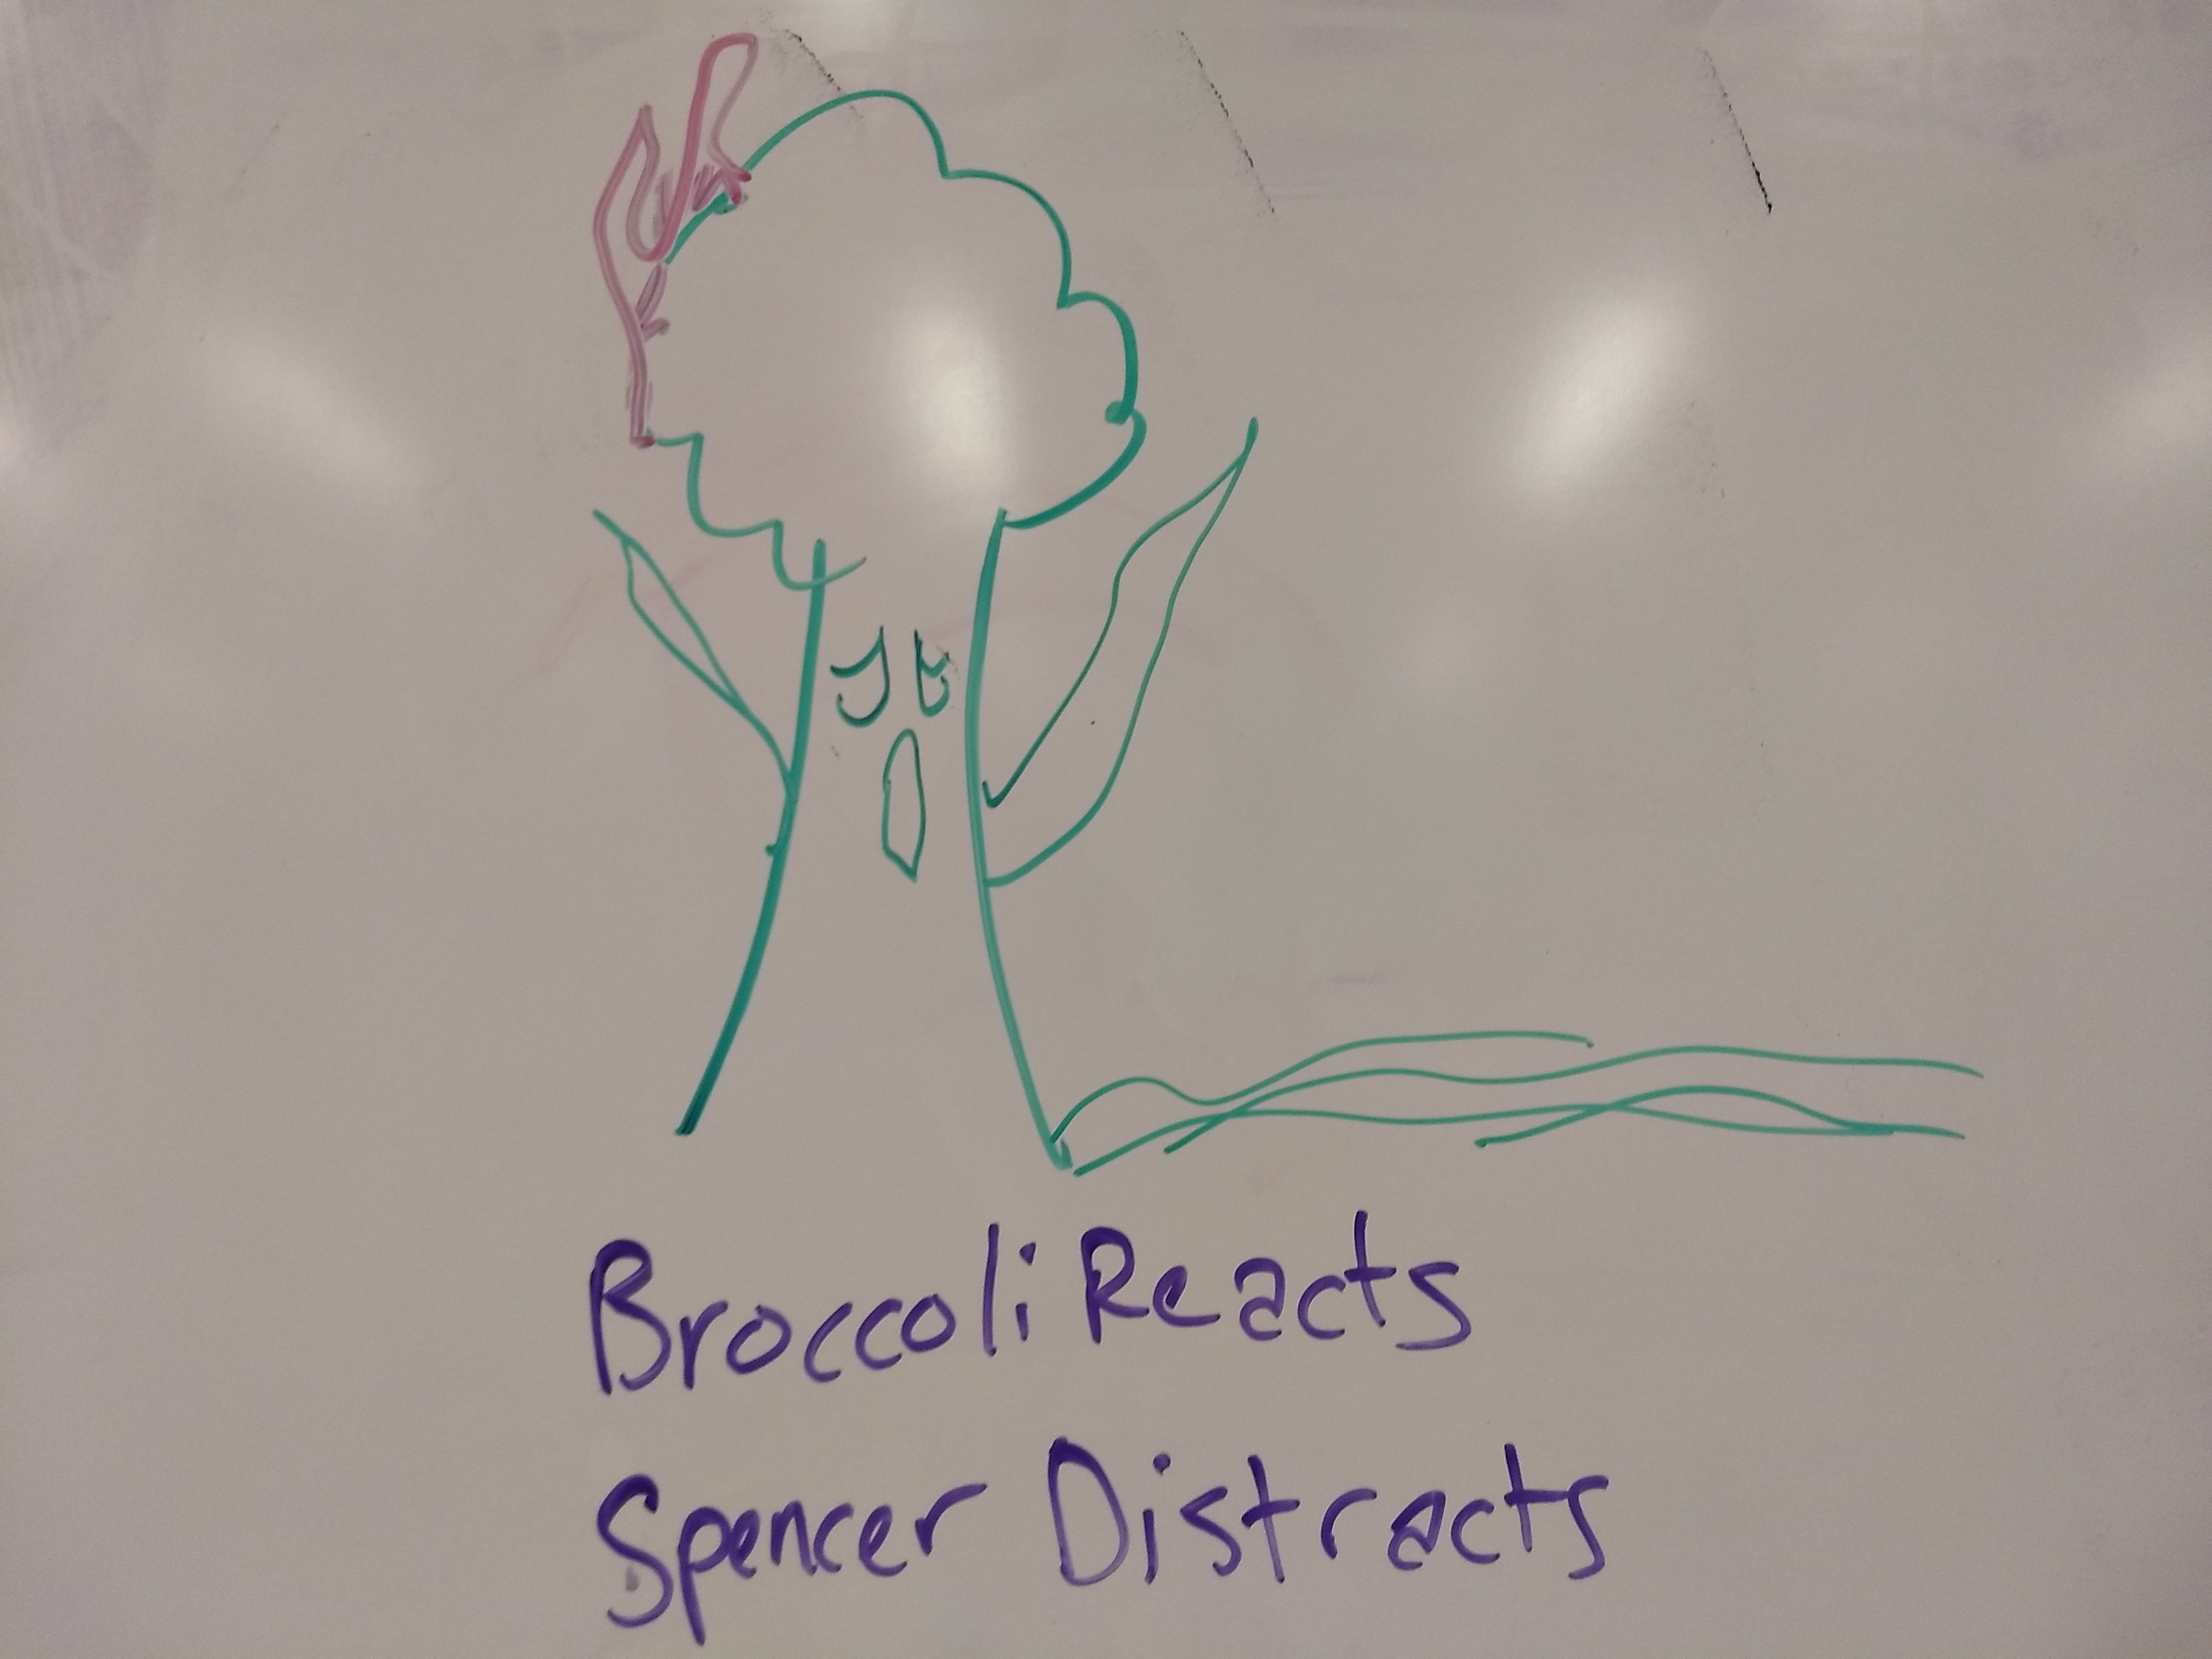 Broccoli Reacts
Spencer Distracts